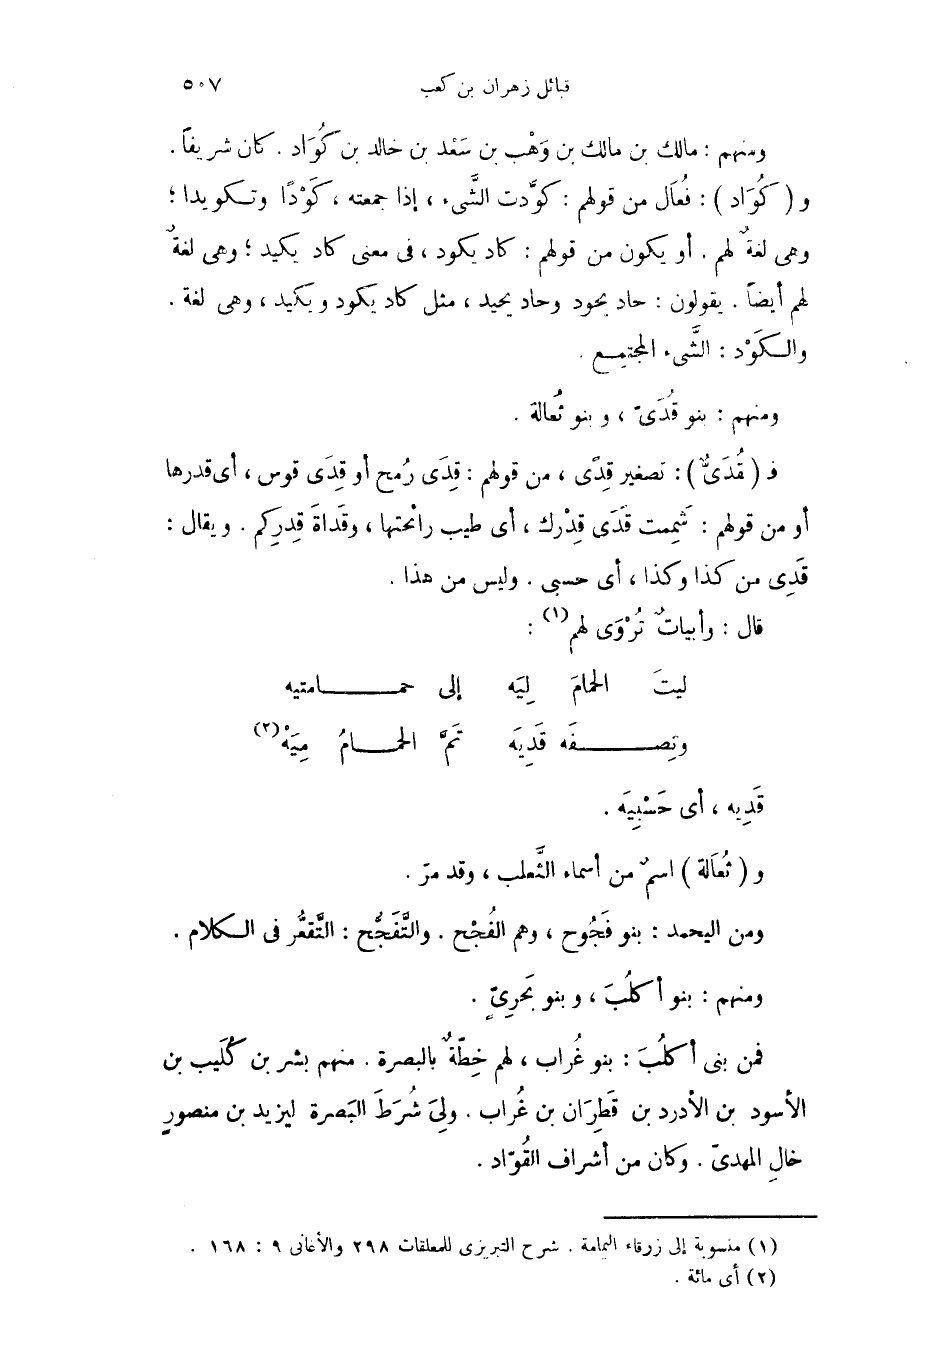 قبائل زهران بن كعب ٥٠٧
ومنهم : مالك بن مالك بن وَهْب بن سَعْد بن خالد بن كُوَاد . كان شريفاً .
و ( كُوَاد ) : فُعَال من قولهم : كوَّدت الشَّىء ، إذا جمعته ، كَوْدًا وتكويدا ؛
وهى لغةٌ لهم . أو يكون من قولهم : كاد يكود ، فى معنى كاد يكيد ؛ وهى لغةٌ
لهم أيضاً . يقولون : حاد يحود وحاد يحيد ، مثل كاد يكود ويكيد ، وهى لغة .
والكَوْد : الشَّىء المجتمع .
ومنهم : بنو قُدَىّ ، وبنو ثُعالة .
فـ ( قُدَىٌّ ) : تصغير قِدًى ، من قولهم : قِدَى رُمح أو قِدَى قوس ، أى قدرها
أو من قولهم : شَمِمت قَدَى قِدْرك ، أى طيب رائحتها ، وقَداةَ قِدرِكم . ويقال :
قَدِى من كذا وكذا ، أى حسبى . وليس من هذا .
قال : وأبياتٌ تُرْوَى لهم (١) :
ليتَ الحمامَ لِيَه إلى حمـامتيه
ونِصـفَه قَدِيَه تَمَّ الحمـامُ مِيَهْ (٢)
قَدِيه ، أى حَسْبِيَه .
و ( ثُعَالة ) اسمٌ من أسماء الثَّعلب ، وقد مرّ .
ومن اليحمد : بنو فَجُوح ، وهم الفُجْح . والتَّفَجُّح : التَّقعُّر فى الكلام .
ومنهم : بنو أكلُبَ ، وبنو بَحَرِىٍّ .
فمن بنى أكلُبَ : بنو غُراب ، لهم خِطّةٌ بالبصرة . منهم بشر بن كُلَيب بن
الأسود بن الأدرد بن قَطِرَان بن غُراب . ولِىَ شُرَطَ البَصرة ليزيد بن منصورٍ
خالِ المهدىّ . وكان من أشراف القُوّاد .
(١) منسوبة إلى زرقاء اليمامة . شرح التبريزى للمعلقات ٢٩٨ والأغانى ٩ : ١٦٨ .
(٢) أى مائة .